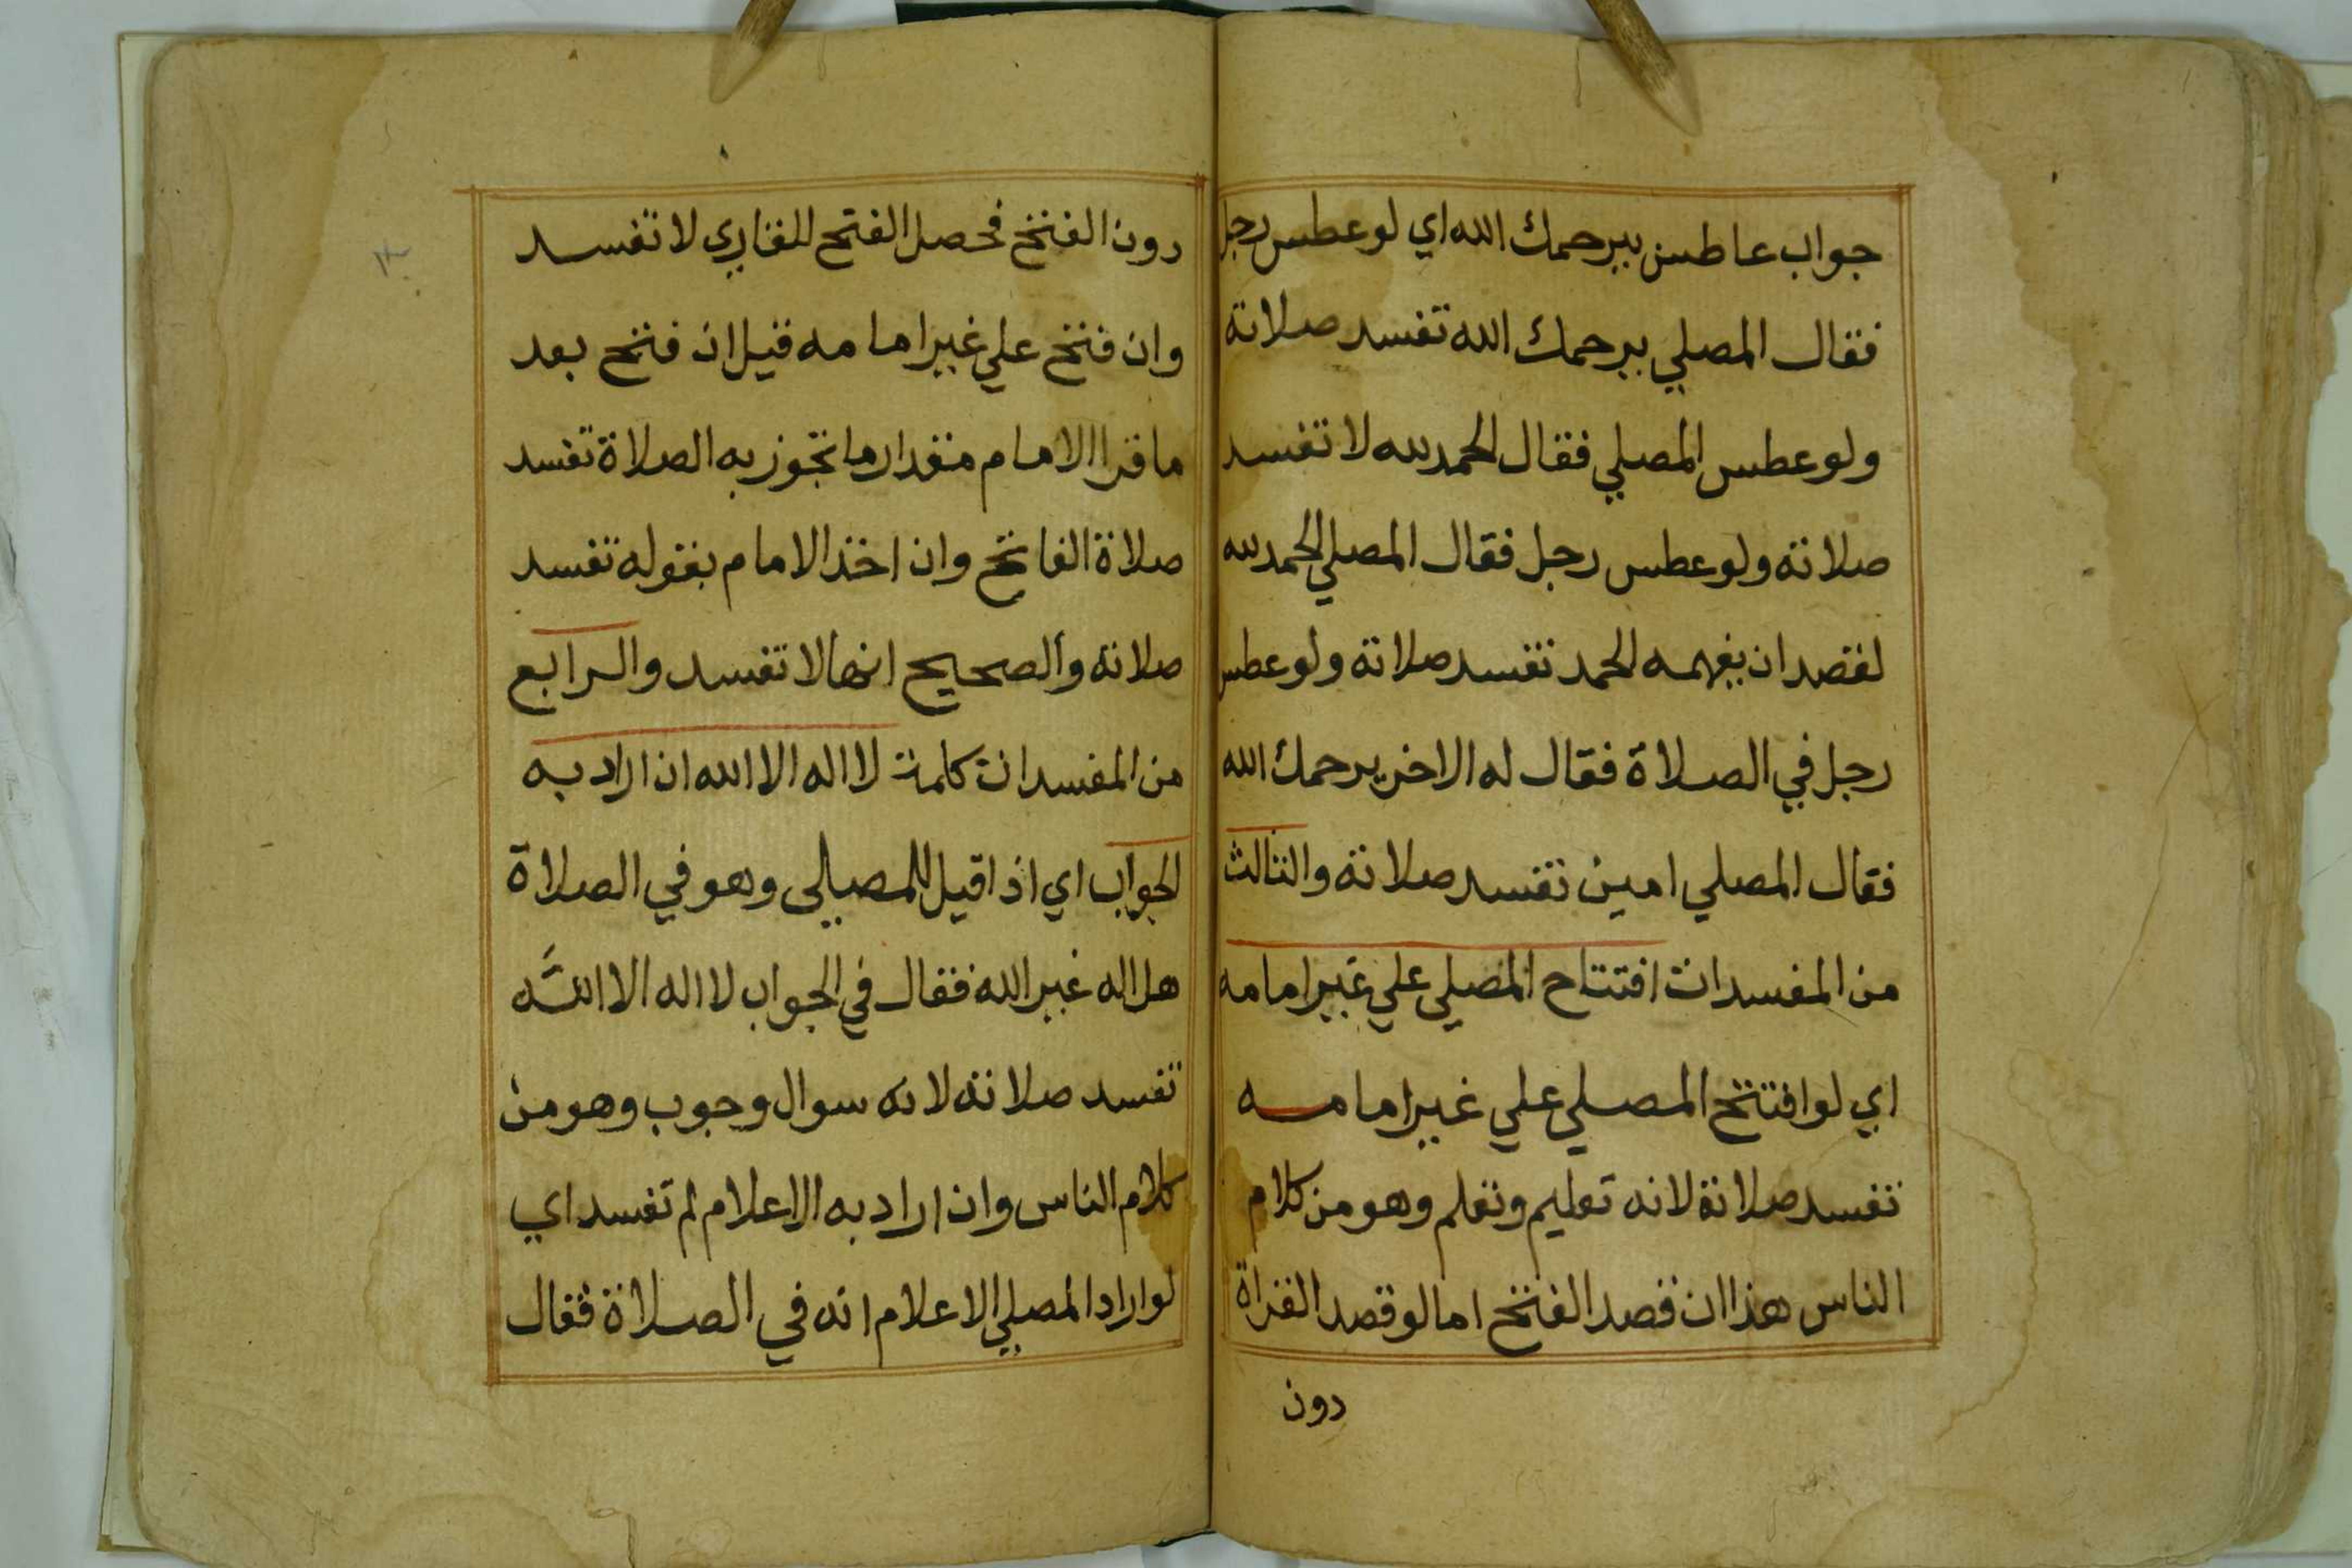 جواب عاطس بيرحمك الله اي لو عطس رجل
فقال المصلي يرحمك الله تفسد صلاته
ولو عطس المصلي فقال الحمد لله لا تفسد
صلاته ولو عطس رجل فقال المصلي الحمد لله
لقصد ان يفهمه الحمد تفسد صلاته ولو عطس
رجل في الصلاة فقال له الاخر يرحمك الله
فقال المصلي امين تفسد صلاته والثالث
من المفسدات افتتاح المصلي علي غير امامه
اي لو افتتح المصلي علي غير امامه
تفسد صلاته لانه تعليم وتعلم وهو من كلام
الناس هذا ان قصد الفتح اما لو قصد القراة
دون
٣٠
دون الفتح فحصل الفتح للقاري لا تفسد
وان فتح علي غير امامه قيل ان فتح بعد
ما قرا الامام مقدار ما تجوز به الصلاة تفسد
صلاة الفاتح وان اخذ الامام بقوله تفسد
صلاته والصحيح انها لا تفسد والرابع
من المفسدات كلمة لا اله الا الله ان اراد به
الجواب اي اذا قيل للمصلي وهو في الصلاة
هل اله غير الله فقال في الجواب لا اله الا الله
تفسد صلاته لانه سوال وجوب وهو من
كلام الناس وان اراد به الاعلام لم تفسد اي
لو اراد المصلي الاعلام انه في الصلاة فقال